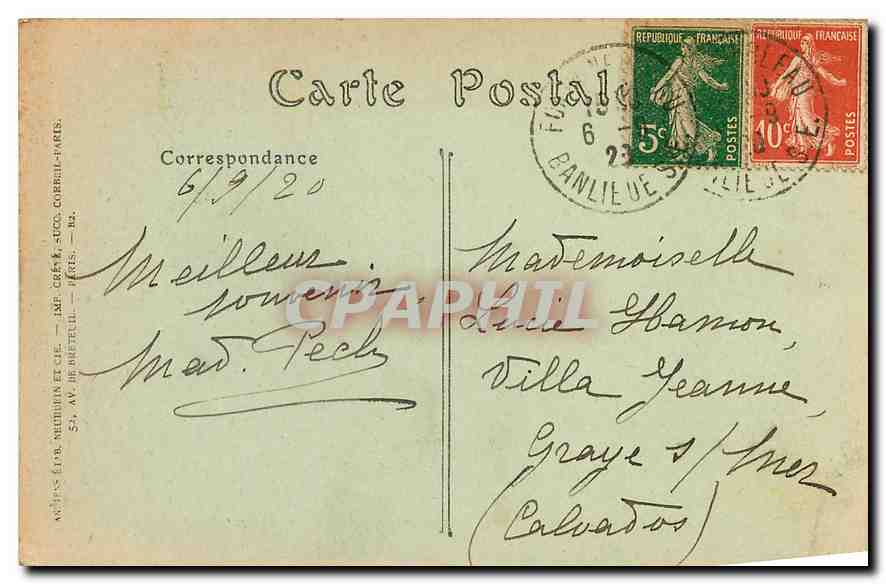 Carte Postale
REPUBLIQUE FRANÇAISE
5c
POSTES
REPUBLIQUE FRANÇAISE
10c
POSTES
BANLIEUE
Correspondance
6/9/20
Meilleur
souvenir
Mad.
Mademoiselle
Lucie Hamon,
Villa Jeanne,
Graye s/Mer
(Calvados)
ANCIENS ÉTAB. NEURDEIN ET CIE. — IMP. CRÉTÉ, SUCC. CORBEIL-PARIS.
52, AV. DE BRETEUIL. — PARIS. — B2.
CPAPHIL